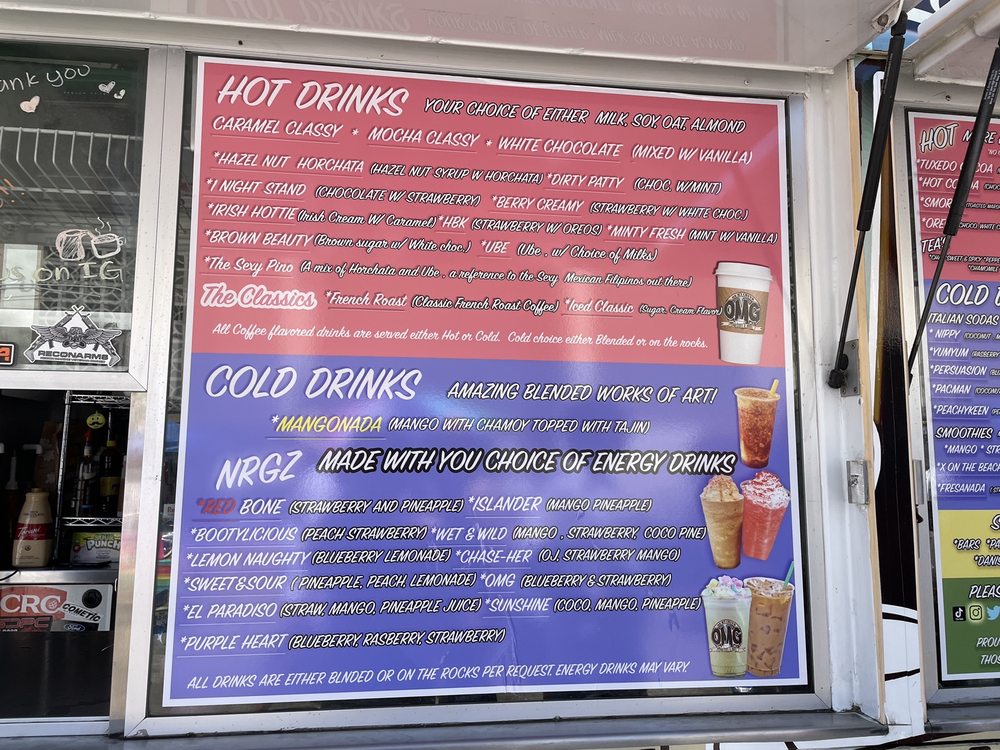 HOT DRINKS YOUR CHOICE OF EITHER MILK, SOY, OAT, ALMOND
CARAMEL CLASSY * MOCHA CLASSY * WHITE CHOCOLATE (MIXED W/ VANILLA)
*HAZEL NUT HORCHATA (HAZEL NUT SYRUP W HORCHATA) *DIRTY PATTY (CHOC. W/MINT)
*1 NIGHT STAND (CHOCOLATE W/ STRAWBERRY) *BERRY CREAMY (STRAWBERRY W/ WHITE CHOC.)
*IRISH HOTTIE (Irish Cream W/ Caramel) *HBK (STRAWBERRY W/ OREOS) *MINTY FRESH (MINT W/ VANILLA)
*BROWN BEAUTY (Brown sugar w/ White choc.) *UBE (Ube, w/ Choice of Milks)
*The Sexy Pino (A mix of Horchata and Ube, a reference to the Sexy Mexican Filipinos out there)
The Classics *French Roast (Classic French Roast Coffee) *Iced Classic (Sugar, Cream Flavor)
All Coffee flavored drinks are served either Hot or Cold. Cold choice either Blended or on the rocks.
OMG
COLD DRINKS AMAZING BLENDED WORKS OF ART!
*MANGONADA (MANGO WITH CHAMOY TOPPED WITH TAJIN)
NRGZ MADE WITH YOU CHOICE OF ENERGY DRINKS
*RED BONE (STRAWBERRY AND PINEAPPLE) *ISLANDER (MANGO PINEAPPLE)
*BOOTYLICIOUS (PEACH STRAWBERRY) *WET & WILD (MANGO, STRAWBERRY, COCO PINE)
*LEMON NAUGHTY (BLUEBERRY LEMONADE) *CHASE-HER (O.J, STRAWBERRY MANGO)
*SWEET&SOUR (PINEAPPLE, PEACH, LEMONADE) *OMG (BLUEBERRY & STRAWBERRY)
*EL PARADISO (STRAW, MANGO, PINEAPPLE JUICE) *SUNSHINE (COCO, MANGO, PINEAPPLE)
*PURPLE HEART (BLUEBERRY, RASBERRY, STRAWBERRY)
OMG
ALL DRINKS ARE EITHER BLNDED OR ON THE ROCKS PER REQUEST. ENERGY DRINKS MAY VARY.
ank you
on IG
RECONARMS
PUNCH
CRC
COMETIC
Ford
HOT
*TUXEDO
*HOT
*SMOR
*ORE
TEA
COLD
ITALIAN SODAS
*NIPPY (COCONUT
*YUMYUM (RASPBERRY
*PERSUASION
*PACMAN
*PEACHYKEEN
SMOOTHIES
*MANGO * STR
*X ON THE BEACH
*FRESANADA
*BARS
*DANIS
PLEAS
PROU
THOS